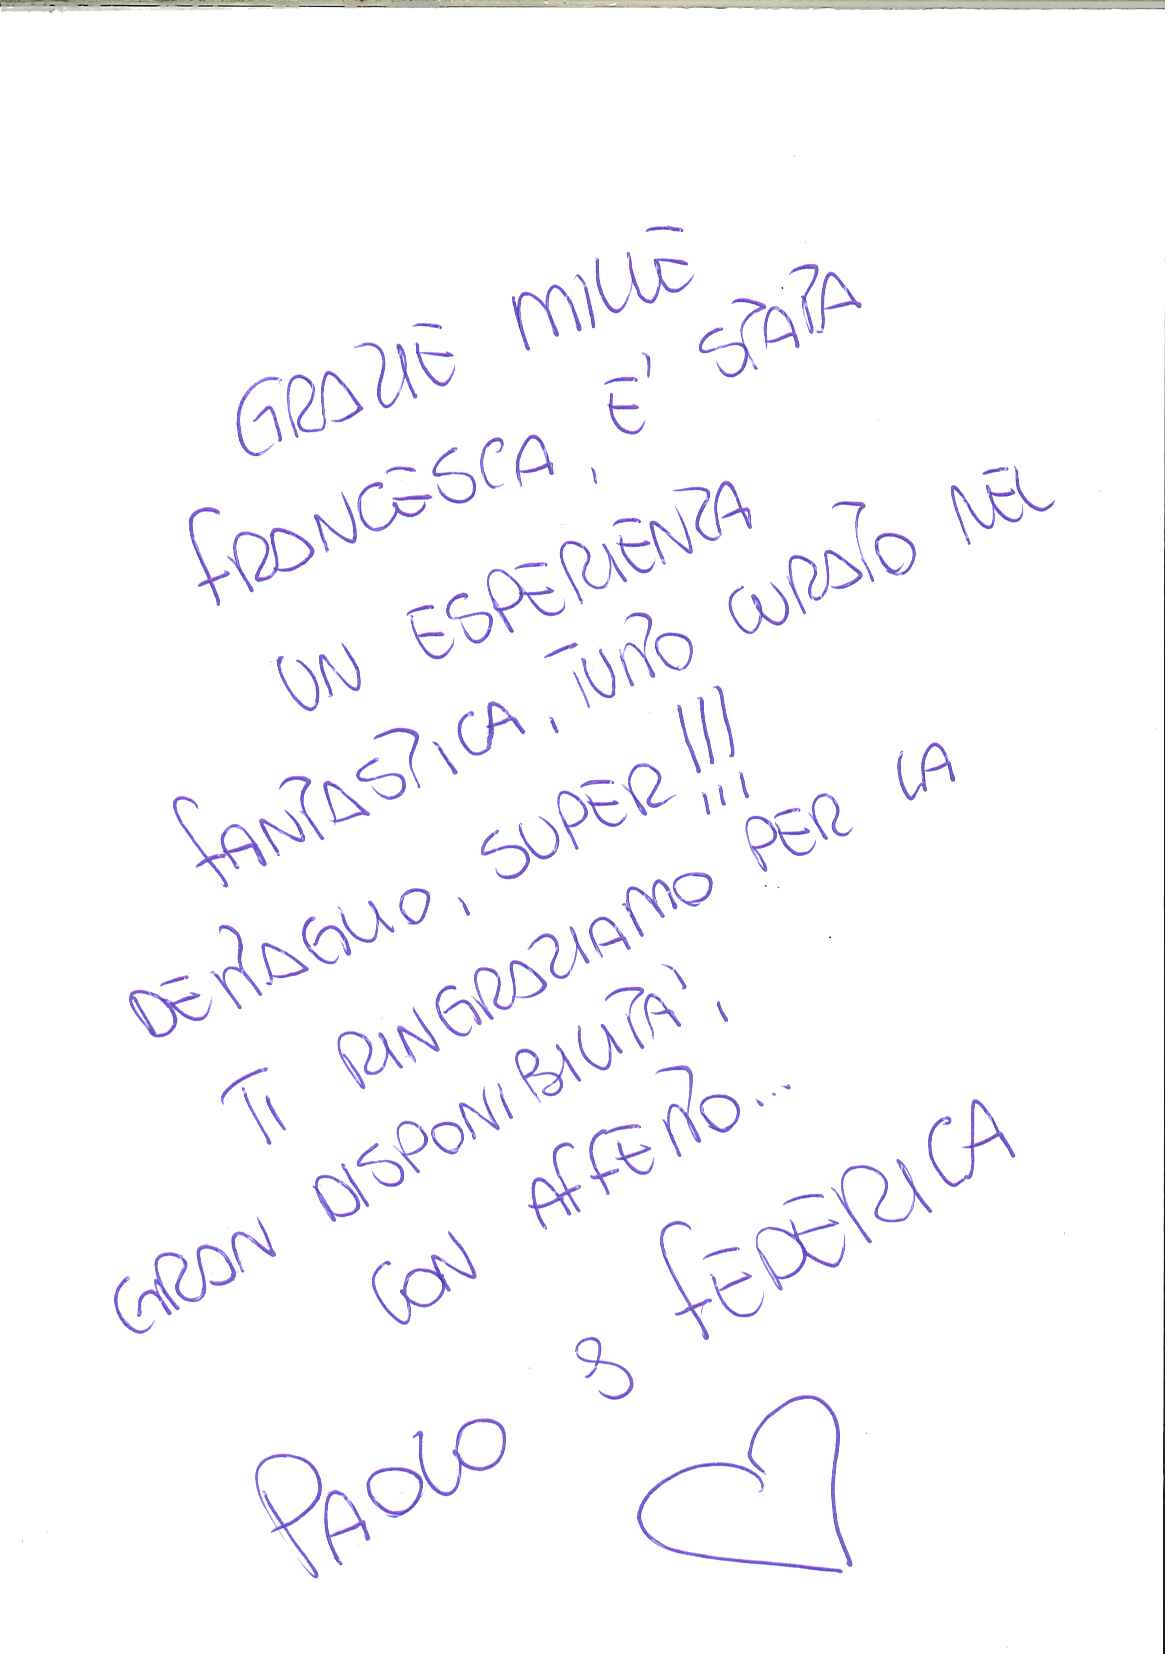 GRAZIE MILLE
FRANCESCA, E' STATA
UN ESPERIENZA
FANTASTICA, TUTTO CURATO NEL
DETTAGLIO, SUPER!!!
TI RINGRAZIAMO PER LA
GRAN DISPONIBILITA',
CON AFFETTO...
PAOLO & FEDERICA